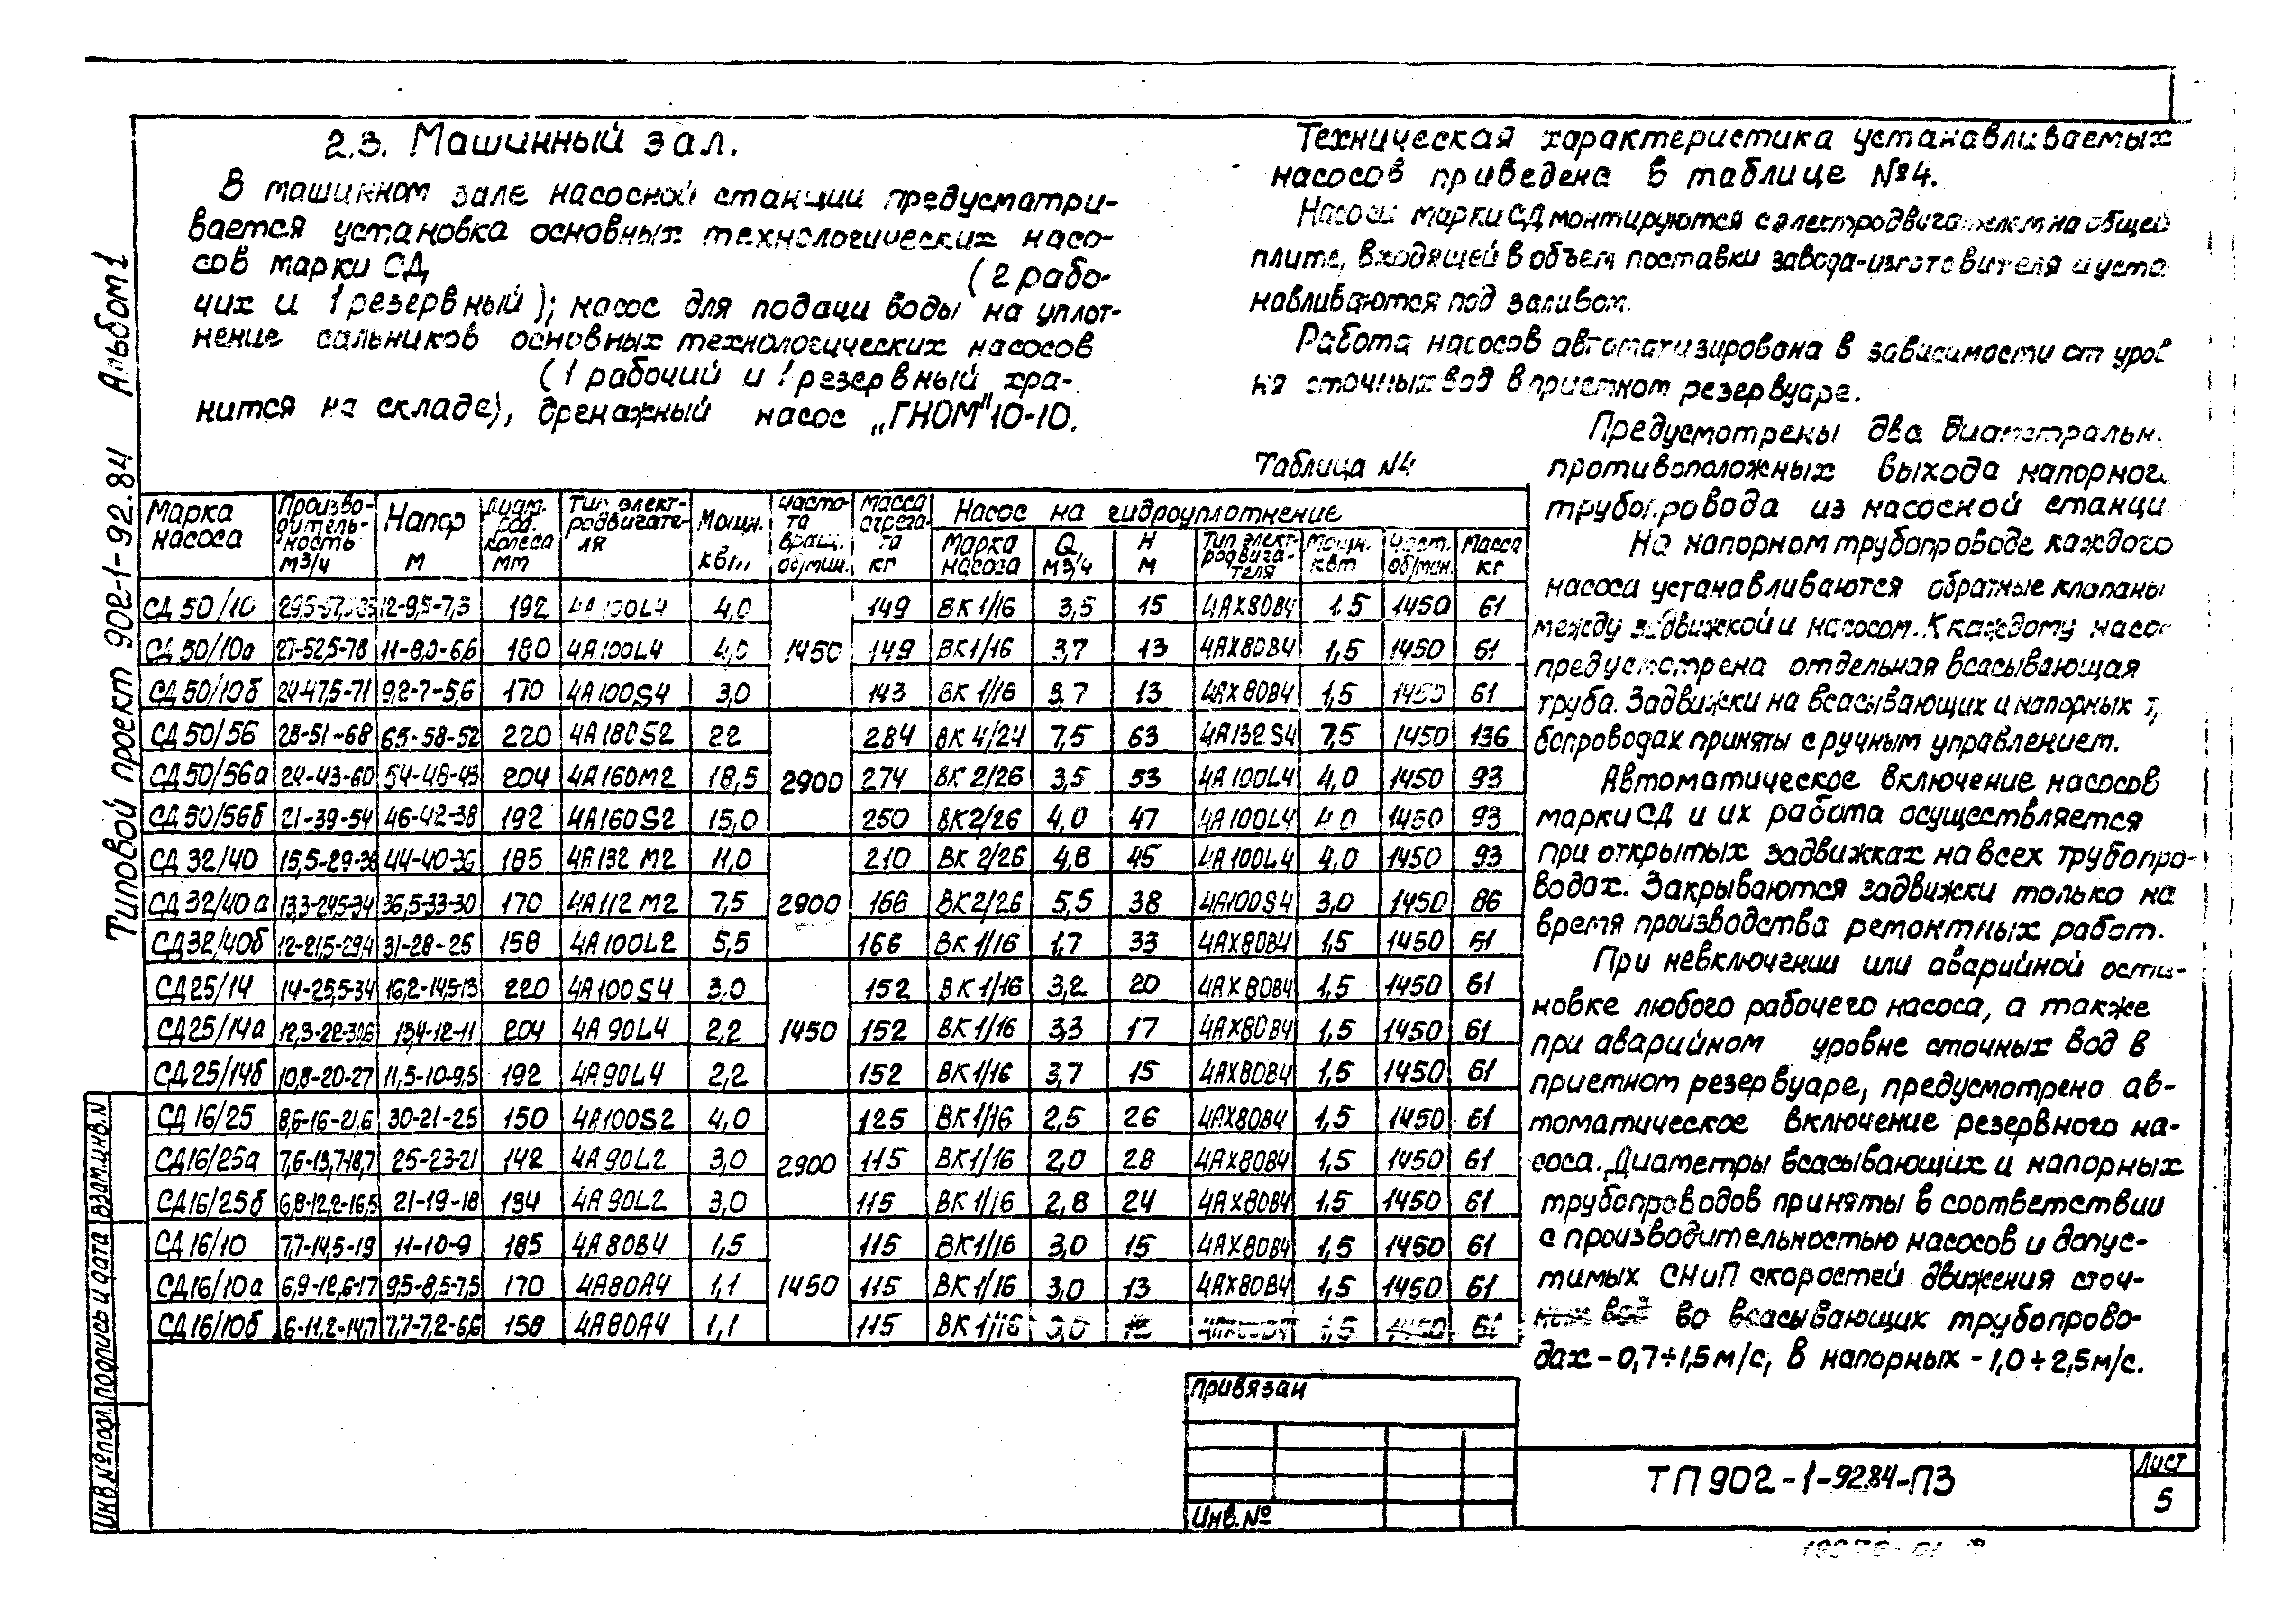 2.3. Машинный зал.
В машинном зале насосной станции предусматри-
вается установка основных технологических насо-
сов марки СД (2 рабо-
чих и 1 резервный); насос для подачи воды на уплот-
нение сальников основных технологических насосов
(1 рабочий и 1 резервный хра-
нится на складе), дренажный насос „ГНОМ" 10-10.
Техническая характеристика устанавливаемых
насосов приведена в таблице №4.
Насосы марки СД монтируются с электродвигателем на общей
плите, входящей в объем поставки завода-изготовителя и уста
навливаются под заливом.
Работа насосов автоматизирована в зависимости от уров
ня сточных вод в приемном резервуаре.
Предусмотрены два диаметральн.
противоположных выхода напорног
трубопровода из насосной станци
На напорном трубопроводе каждого
насоса устанавливаются обратные клапаны
между задвижкой и насосом. К каждому насос
предусмотрена отдельная всасывающая
труба. Задвижки на всасывающих и напорных т
бопроводах приняты с ручным управлением.
Автоматическое включение насосов
марки СД и их работа осуществляется
при открытых задвижках на всех трубопро-
водах. Закрываются задвижки только на
время производства ремонтных работ.
При невключении или аварийной оста-
новке любого рабочего насоса, а также
при аварийном уровне сточных вод в
приемном резервуаре, предусмотрено ав-
томатическое включение резервного на-
соса. Диаметры всасывающих и напорных
трубопроводов приняты в соответствии
с производительностью насосов и допус-
тимых СНиП скоростей движения сточ-
ных вод во всасывающих трубопрово-
дах - 0,7÷1,5 м/с, в напорных - 1,0÷2,5 м/с.
Таблица №4
Марка насоса | Произво-дитель-ность м3/ч | Напор м | Диам. раб. колеса мм | Тип элект-родвигате-ля | Мощн. квт | Часто-та вращ. об/мин. | Масса агрега-та кг | Насос на гидроуплотнение
Марка насоса | Q м3/ч | Н м | Тип элект-родвига-теля | Мощн. квт | Част. об/мин. | Масса кг
СД 50/10 12-9,5-7,3 192 4А100L4 4,0 149 ВК 1/16 3,5 15 4АХ80В4 1.5 1450 61
СД 50/10а 27-52,5-78 11-8,0-6,6 180 4А100L4 4,0 1450 149 ВК1/16 3,7 13 4АХ80В4 1,5 1450 61
СД 50/10б 24-47,5-71 9,2-7-5,6 170 4А100S4 3,0 143 ВК 1/16 3,7 13 4АХ80В4 1,5 1450 61
СД 50/56 28-51-68 65-58-52 220 4А180S2 22 284 ВК 4/24 7,5 63 4А132S4 7,5 1450 136
СД 50/56а 24-43-60 54-48-43 204 4А160М2 18,5 2900 274 ВК 2/26 3,5 53 4А100L4 4,0 1450 93
СД 50/56б 21-39-54 46-42-38 192 4А160S2 15,0 250 ВК2/26 4,0 47 4А100L4 4,0 1450 93
СД 32/40 15,5-29-38 44-40-36 185 4А132 М2 11,0 210 ВК 2/26 4,8 45 4А100L4 4,0 1450 93
СД 32/40 а 13,3-24,5-34 36,5-33-30 170 4А112 М2 7,5 2900 166 ВК2/26 5,5 38 4А100S4 3,0 1450 86
СД 32/40б 12-21,5-29,4 31-28-25 158 4А100L2 5,5 166 ВК 1/16 1,7 33 4АХ80В4 1,5 1450 61
СД 25/14 14-25,5-34 16,2-14,5-13 220 4А100 S4 3,0 152 ВК 1/16 3,2 20 4АХ80В4 1,5 1450 61
СД 25/14а 12,3-22-30,6 13,4-12-11 204 4А 90L4 2,2 1450 152 ВК 1/16 3,3 17 4АХ80В4 1,5 1450 61
СД 25/14б 10,8-20-27 11,5-10-9,5 192 4А 90L4 2,2 152 ВК1/16 3,7 15 4АХ80В4 1,5 1450 61
СД 16/25 8,6-16-21,6 30-21-25 150 4А100S2 4,0 125 ВК 1/16 2,5 26 4АХ80В4 1,5 1450 61
СД16/25а 7,6-13,7-18,7 25-23-21 142 4А 90L2 3,0 2900 115 ВК1/16 2,0 28 4АХ80В4 1,5 1450 61
СД16/25б 6,8-12,2-16,5 21-19-18 134 4А 90L2 3,0 115 ВК 1/16 2,8 24 4АХ80В4 1,5 1450 61
СД 16/10 7,7-14,5-19 11-10-9 185 4А 80В4 1,5 115 ВК1/16 3,0 15 4АХ80В4 1,5 1450 61
СД16/10а 6,9-12,6-17 9,5-8,5-7,5 170 4А80А4 1,1 1450 115 ВК 1/16 3,0 13 4АХ80В4 1,5 1450 61
СД 16/10б 6-11,2-14,7 7,7-7,2-6,6 158 4А80А4 1,1 115 ВК 1/16 3,0 1,5 1450 61
Привязан
Инв. №
ТП 902-1-92.84-ПЗ
Лист
5
Типовой проект 902-1-92.84 Альбом 1
Взам.инв.N
Подпись и дата
Инв.№ подл.